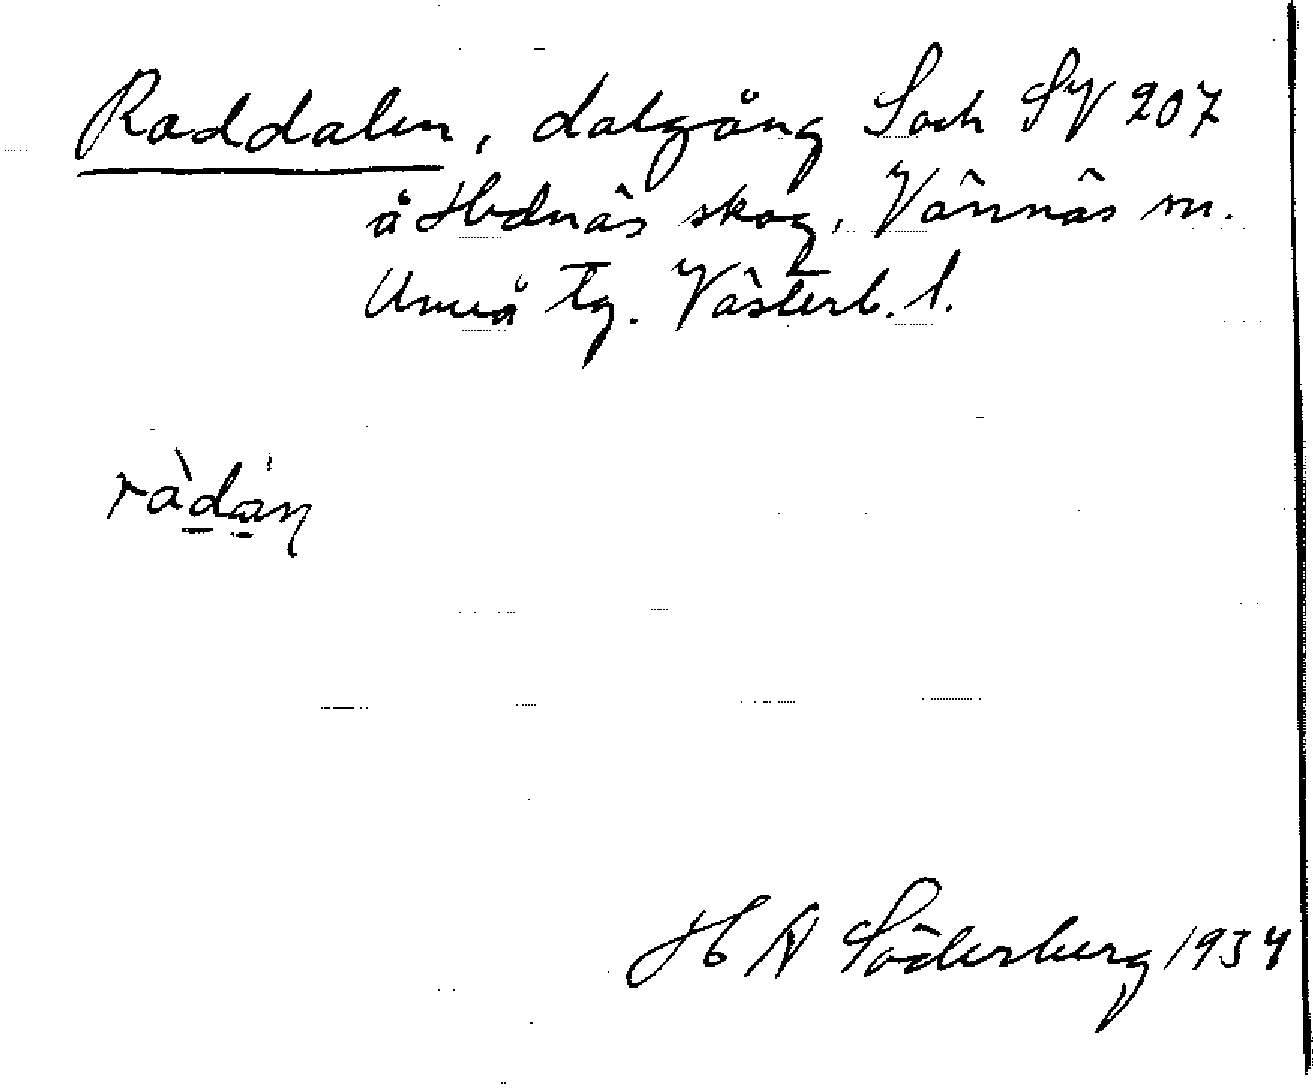 Raddalen, dalgång S och SV 207
å Hednäs skog, Vännäs m.
Umeå tg. Västerb. l.
ràdán
H A Söderberg 1934